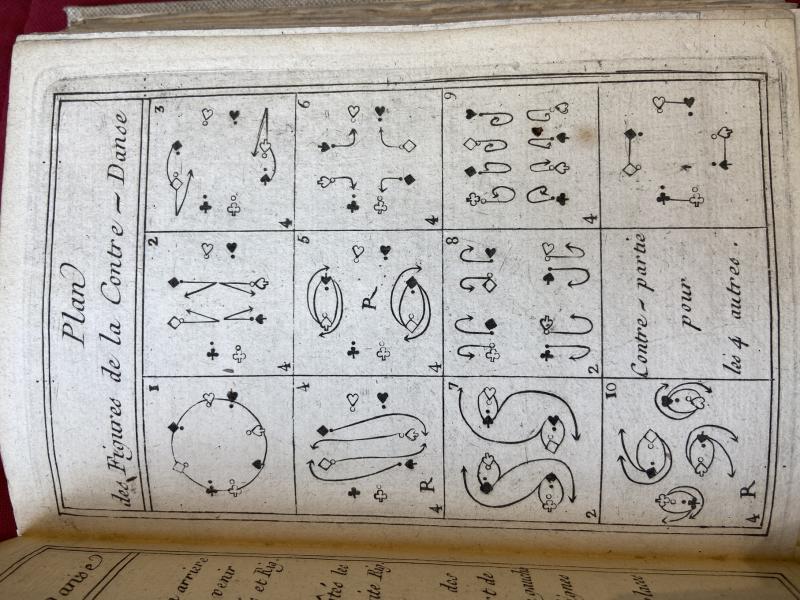 Plan
des Figures de la Contre - Danse
1
2
4
3
4
4
4 R
5
R
4
6
4
7
2
8
2
9
4
10
4 R
Contre - partie
pour
les 4 autres.
Danse
arriere
venir
et Rig.
tés les
des